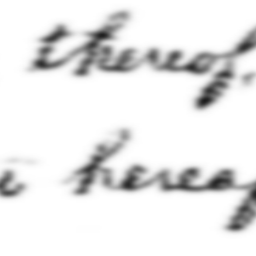 thereof,
hereof